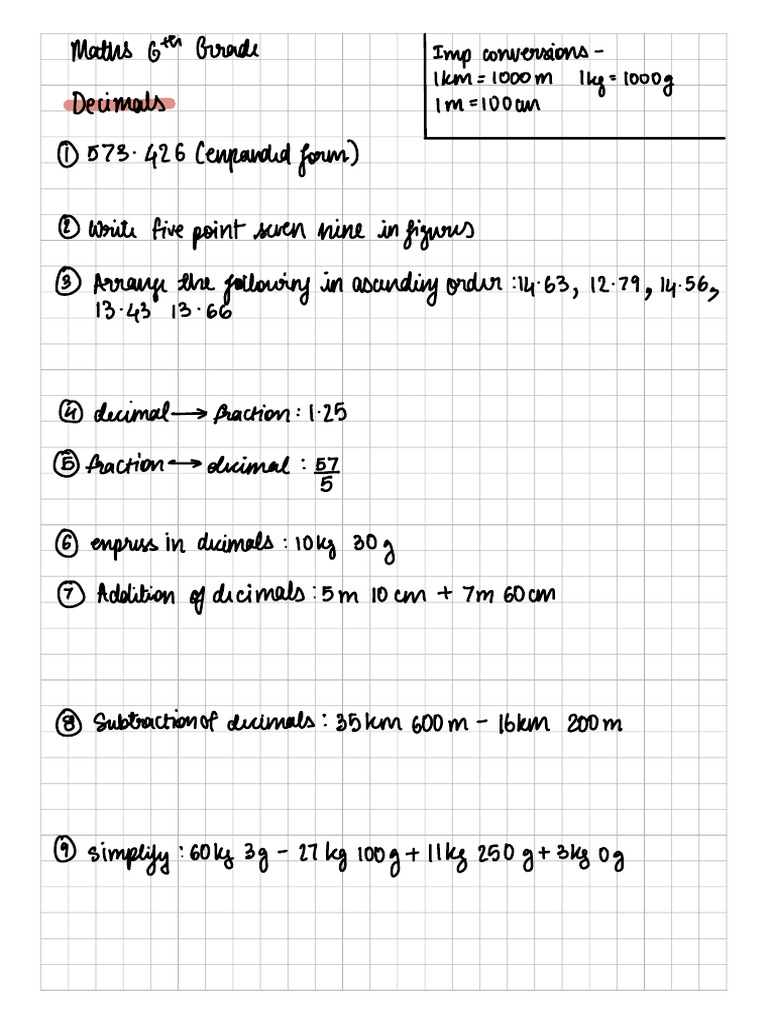 Maths 6th Grade
Imp conversions -
1km = 1000 m 1kg = 1000g
1 m = 100 cm
Decimals
① 573.426 (expanded form)
② Write five point seven nine in figures
③ Arrange the following in ascending order : 14.63, 12.79, 14.56,
13.43 13.66
④ decimal → fraction : 1.25
⑤ fraction → decimal : 57/5
⑥ express in decimals : 10kg 30g
⑦ Addition of decimals : 5m 10 cm + 7m 60cm
⑧ Subtraction of decimals : 35km 600m - 16km 200m
⑨ simplify : 60kg 3g - 27kg 100g + 11kg 250g + 3kg 0g